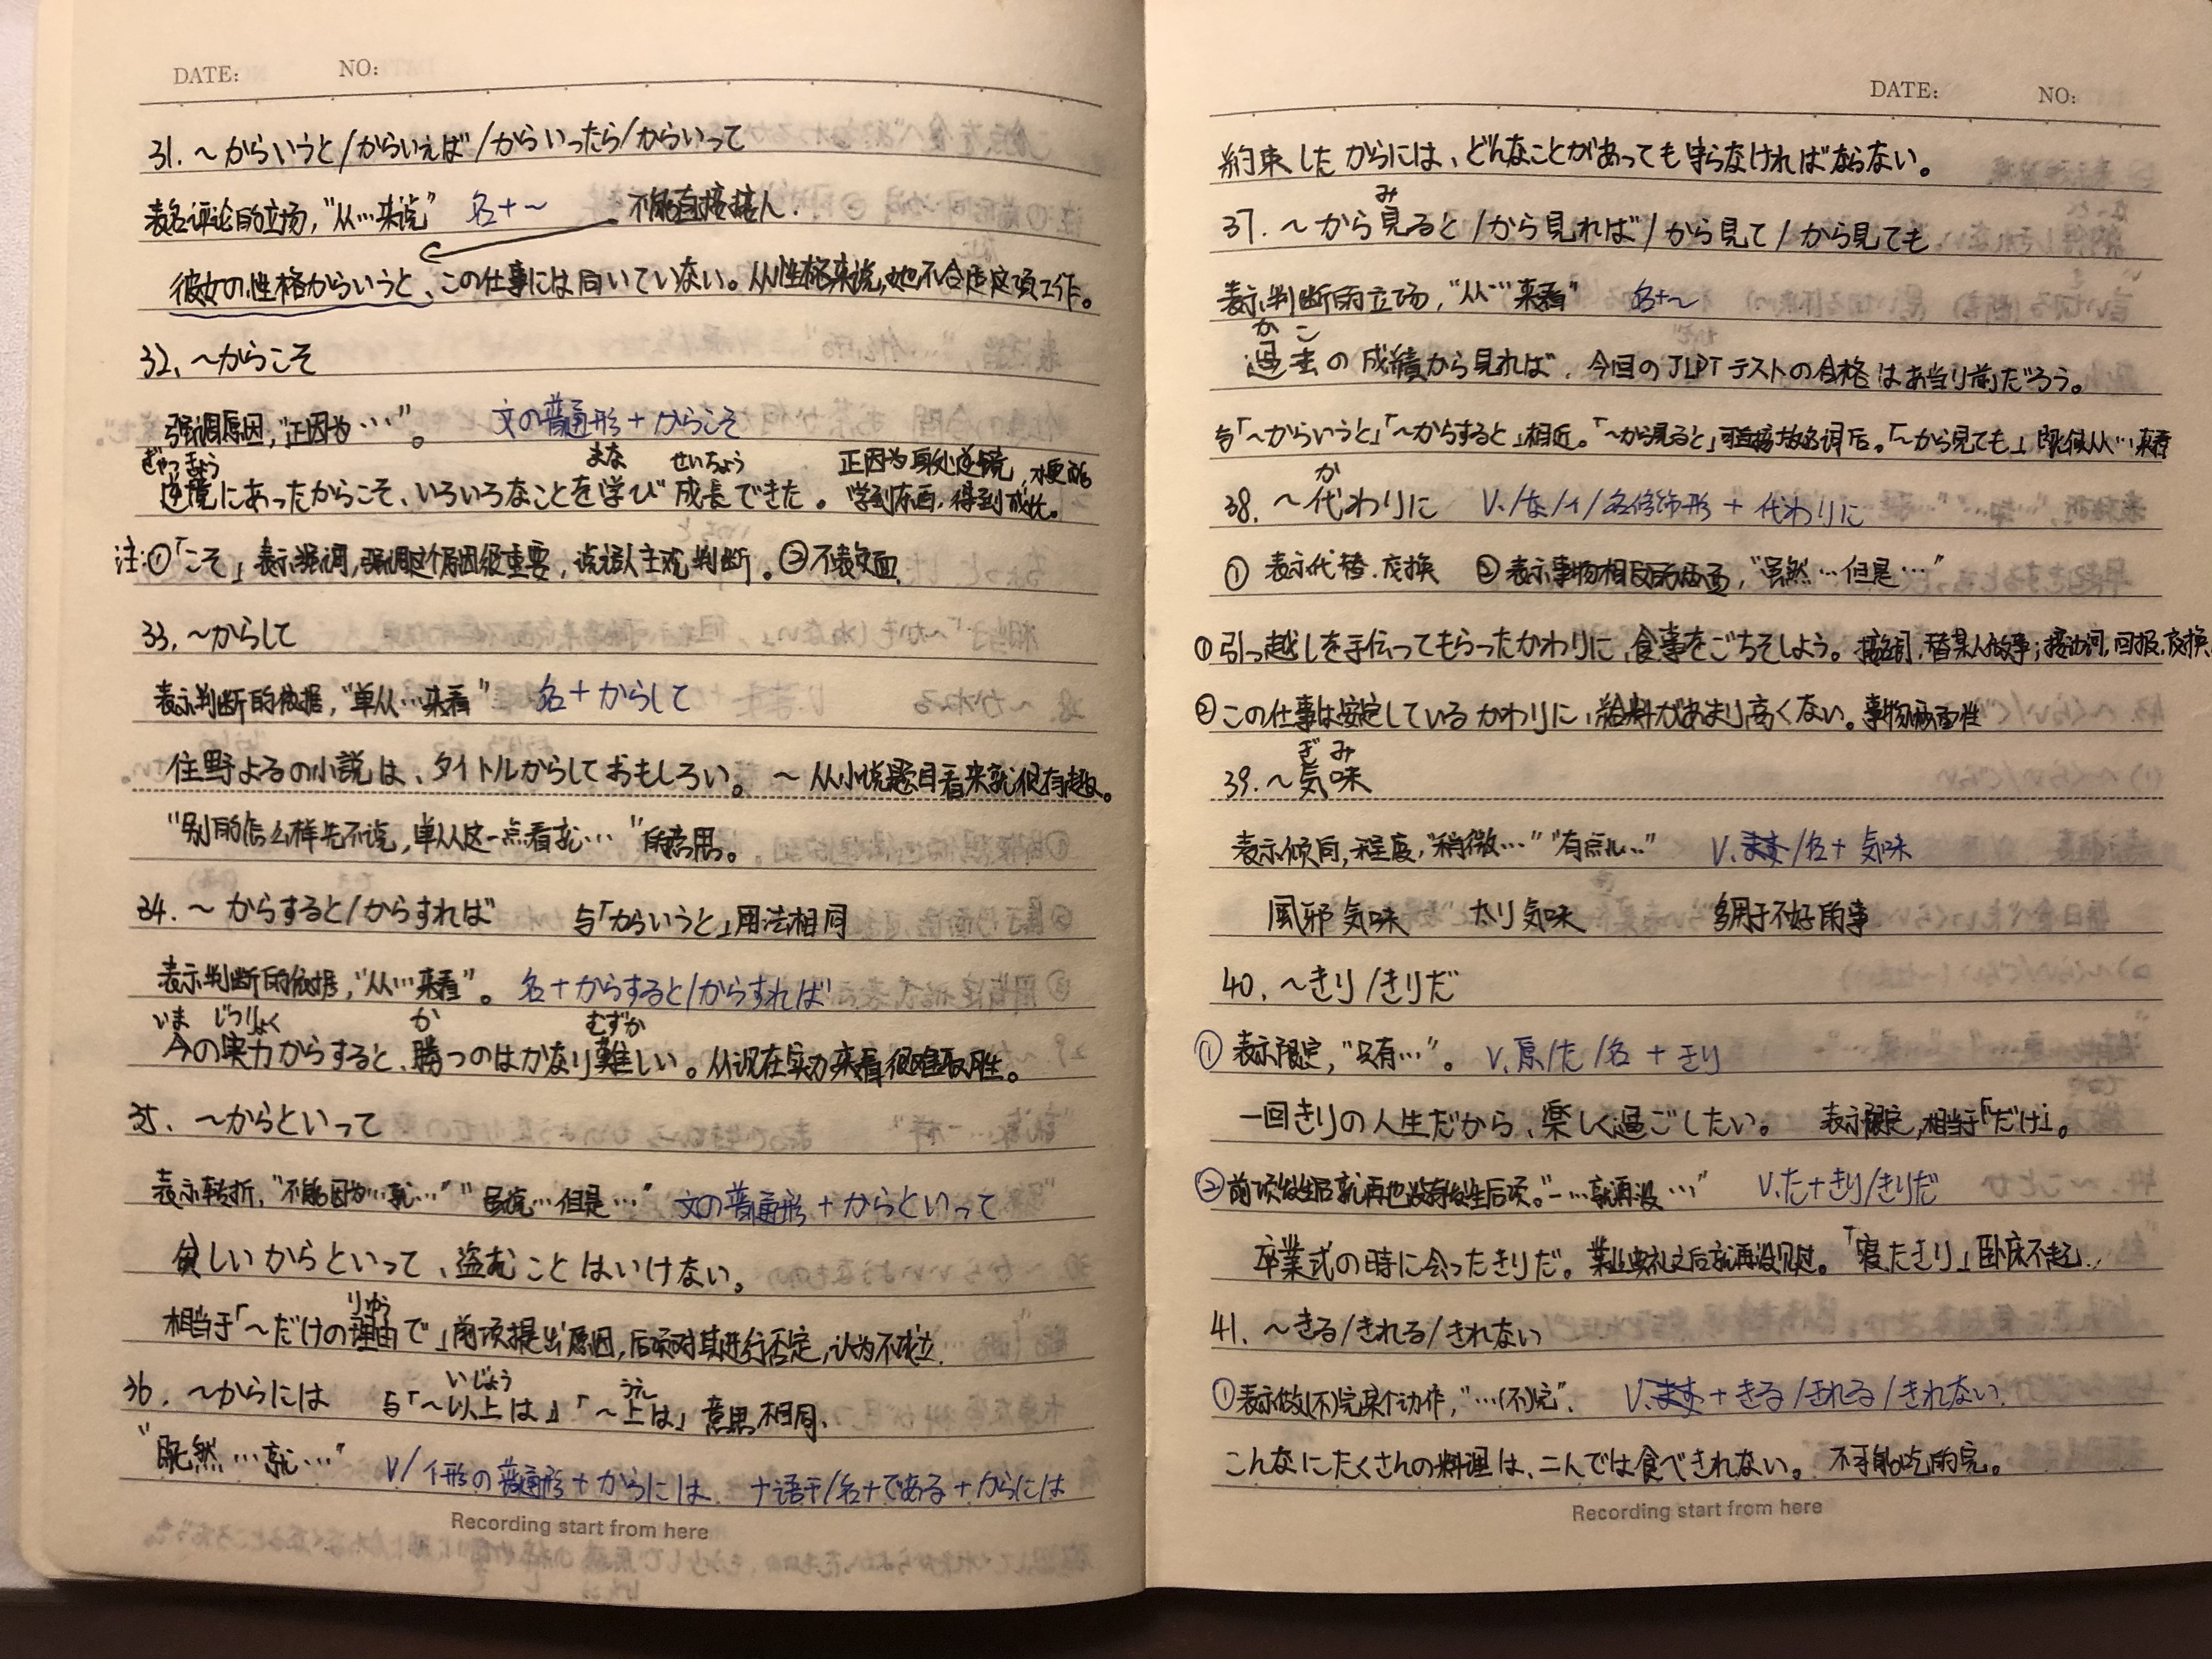 DATE: NO:
31. ～からいうと/からいえば/からいったら/からいって
表名评论的立场,"从…来说" 名+～ 不能直接接人.
彼女の性格からいうと、この仕事には向いていない。从性格来说,她不合适这项工作。
32、～からこそ
强调原因,"正因为…"。 文の普通形+からこそ
ぎゃっきょう まな せいちょう 正因为身处逆镜,才更能
逆境にあったからこそ、いろいろなことを学び成長できた。学到东西,得到成长。
注:①「こそ」表示强调,强调这个原因很重要,说话人主观判断。②不表负面.
33、～からして
表示判断的依据,"单从…来看" 名+からして
住野よるの小説は、タイトルからしておもしろい。 ～从小说题目看来就很有趣。
"别的怎么样先不说,单从这一点看就…"的意思。
34. ～からすると/からすれば 与「からいうと」用法相同
表示判断的依据,"从…来看"。 名+からすると/からすれば
いま じつりょく か むずか
今の実力からすると、勝つのはかなり難しい。从现在实力来看很难取胜。
35、～からといって
表示转折,"不能因为…就…" "虽说…但是…" 文の普通形+からといって
貧しいからといって、盗むことはいけない。
りゆう
相当于「～だけの理由で」前项提出原因,后项对其进行否定,认为不成立.
いじょう うえ
36. ～からには 与「～以上は」「～上は」意思相同、
"既然…就…" V/イ形の普通形+からには ナ语干/名+である+からには
Recording start from here
DATE: NO:
約束したからには、どんなことがあっても守らなければならない。
み
37. ～から見ると/から見れば/から見て/から見ても
表示判断的立场,"从…来看" 名+～
かこ
過去の成績から見れば、今回のJLPTテストの合格はあ当り前だろう。
与「～からいうと」「～からすると」相近。「～から見ると」可直接放名词后。「～から見ても」即使从…来看
か
38. ～代わりに V./な/イ/名修饰形+代わりに
① 表示代替.交换 ②表示事物相反的两面,"虽然…但是…"
①引っ越しを手伝ってもらったかわりに、食事をごちそしよう。接名词,替某人做事;接动词,回报,交换.
②この仕事は安定しているかわりに、給料があまり高くない。事物两面性
ぎみ
39. ～気味
表示倾向,程度,"稍微…" "有点儿…" V.ます/名+気味
風邪気味 太り気味 多用于不好的事
40. ～きり/きりだ
① 表示限定,"只有…"。 V.原/た/名+きり
一回きりの人生だから、楽しく過ごしたい。 表示限定,相当于「だけ」。
②前项发生后就再也没有发生后项。"一…就再没…" V.た+きり/きりだ
卒業式の時に会ったきりだ。毕业典礼之后就再没见过。「寝たきり」卧床不起.
41. ～きる/きれる/きれない
①表示做(不)完某个动作,"…(不)完". V.ます+きる/きれる/きれない.
こんなにたくさんの料理は、二人では食べきれない。 不可能吃的完。
Recording start from here